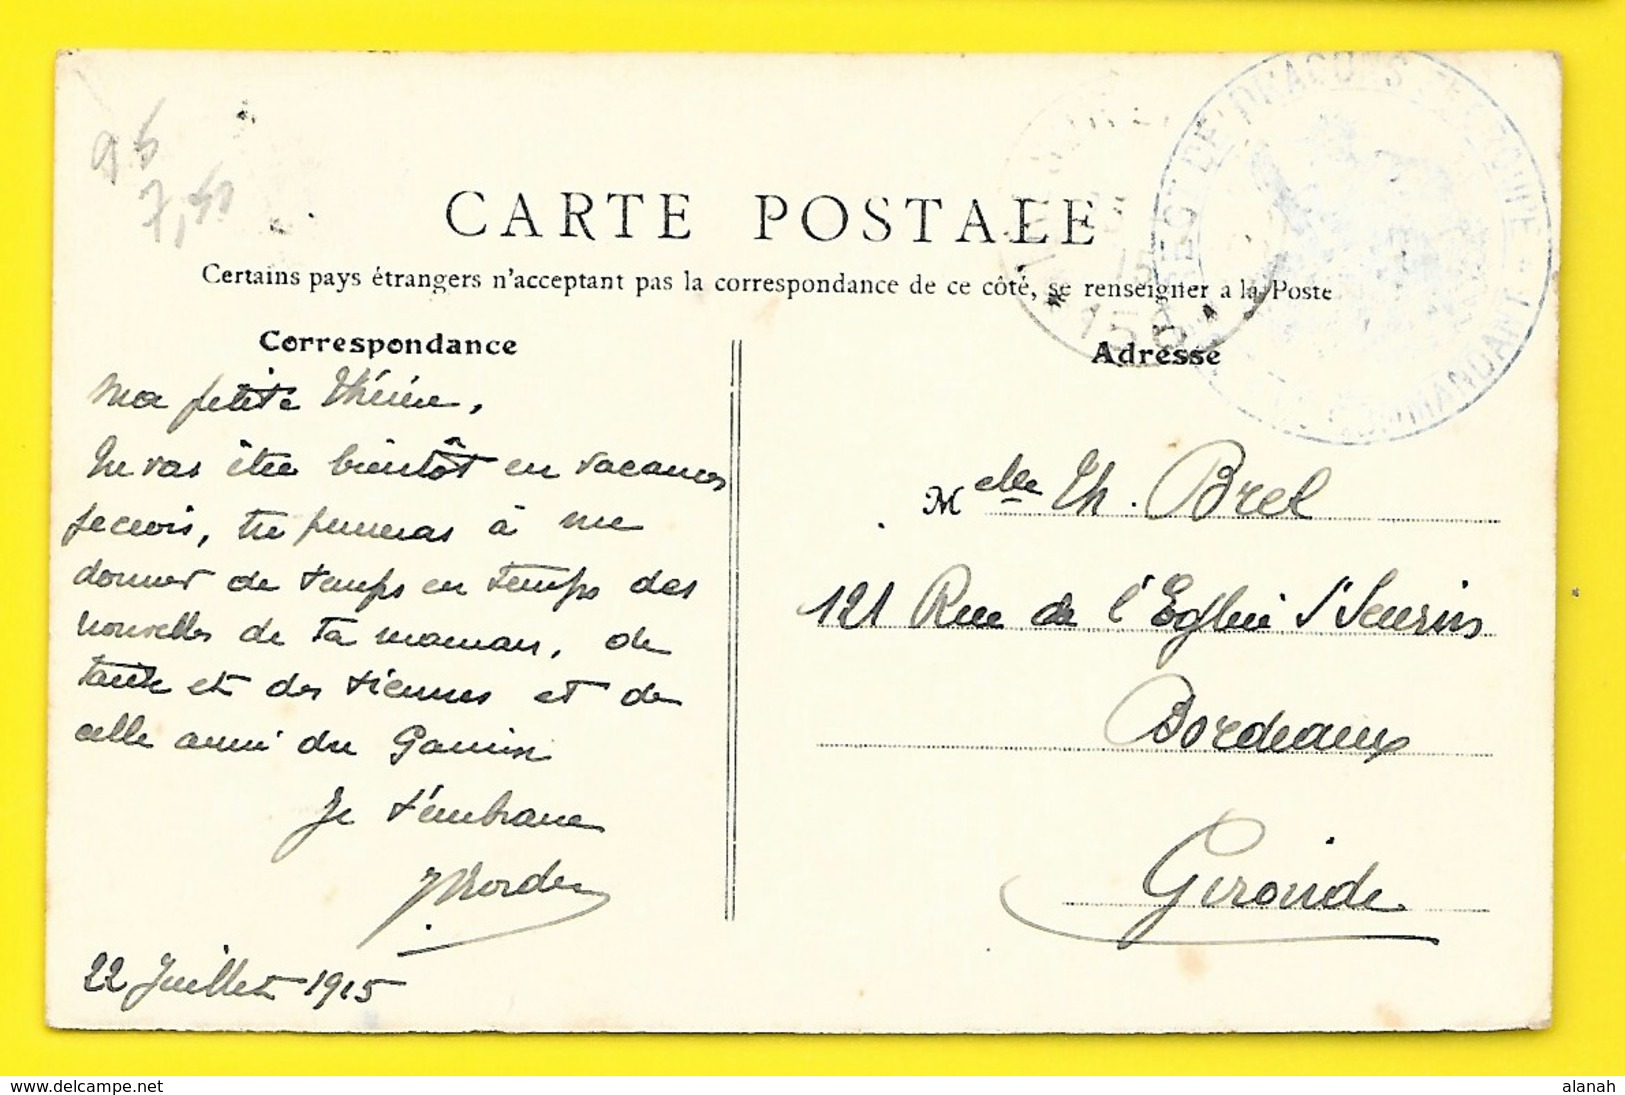 96
7,50
CARTE POSTALE
Certains pays étrangers n'acceptant pas la correspondance de ce côté, se renseigner à la Poste
Correspondance
Adresse
DE DRAGONS
COMMANDANT
15
156
Ma petite
Tu vas être bientôt en vacances
je crois, tu penseras à me
donner de temps en temps des
nouvelles de ta maman, de
tante et des tiennes et de
celle aussi du
Je t'embrasse
22 Juillet 1915
Melle Th. Brel
121 Rue de l'Eglise St Seurin
Bordeaux
Gironde
www.delcampe.net
alanah